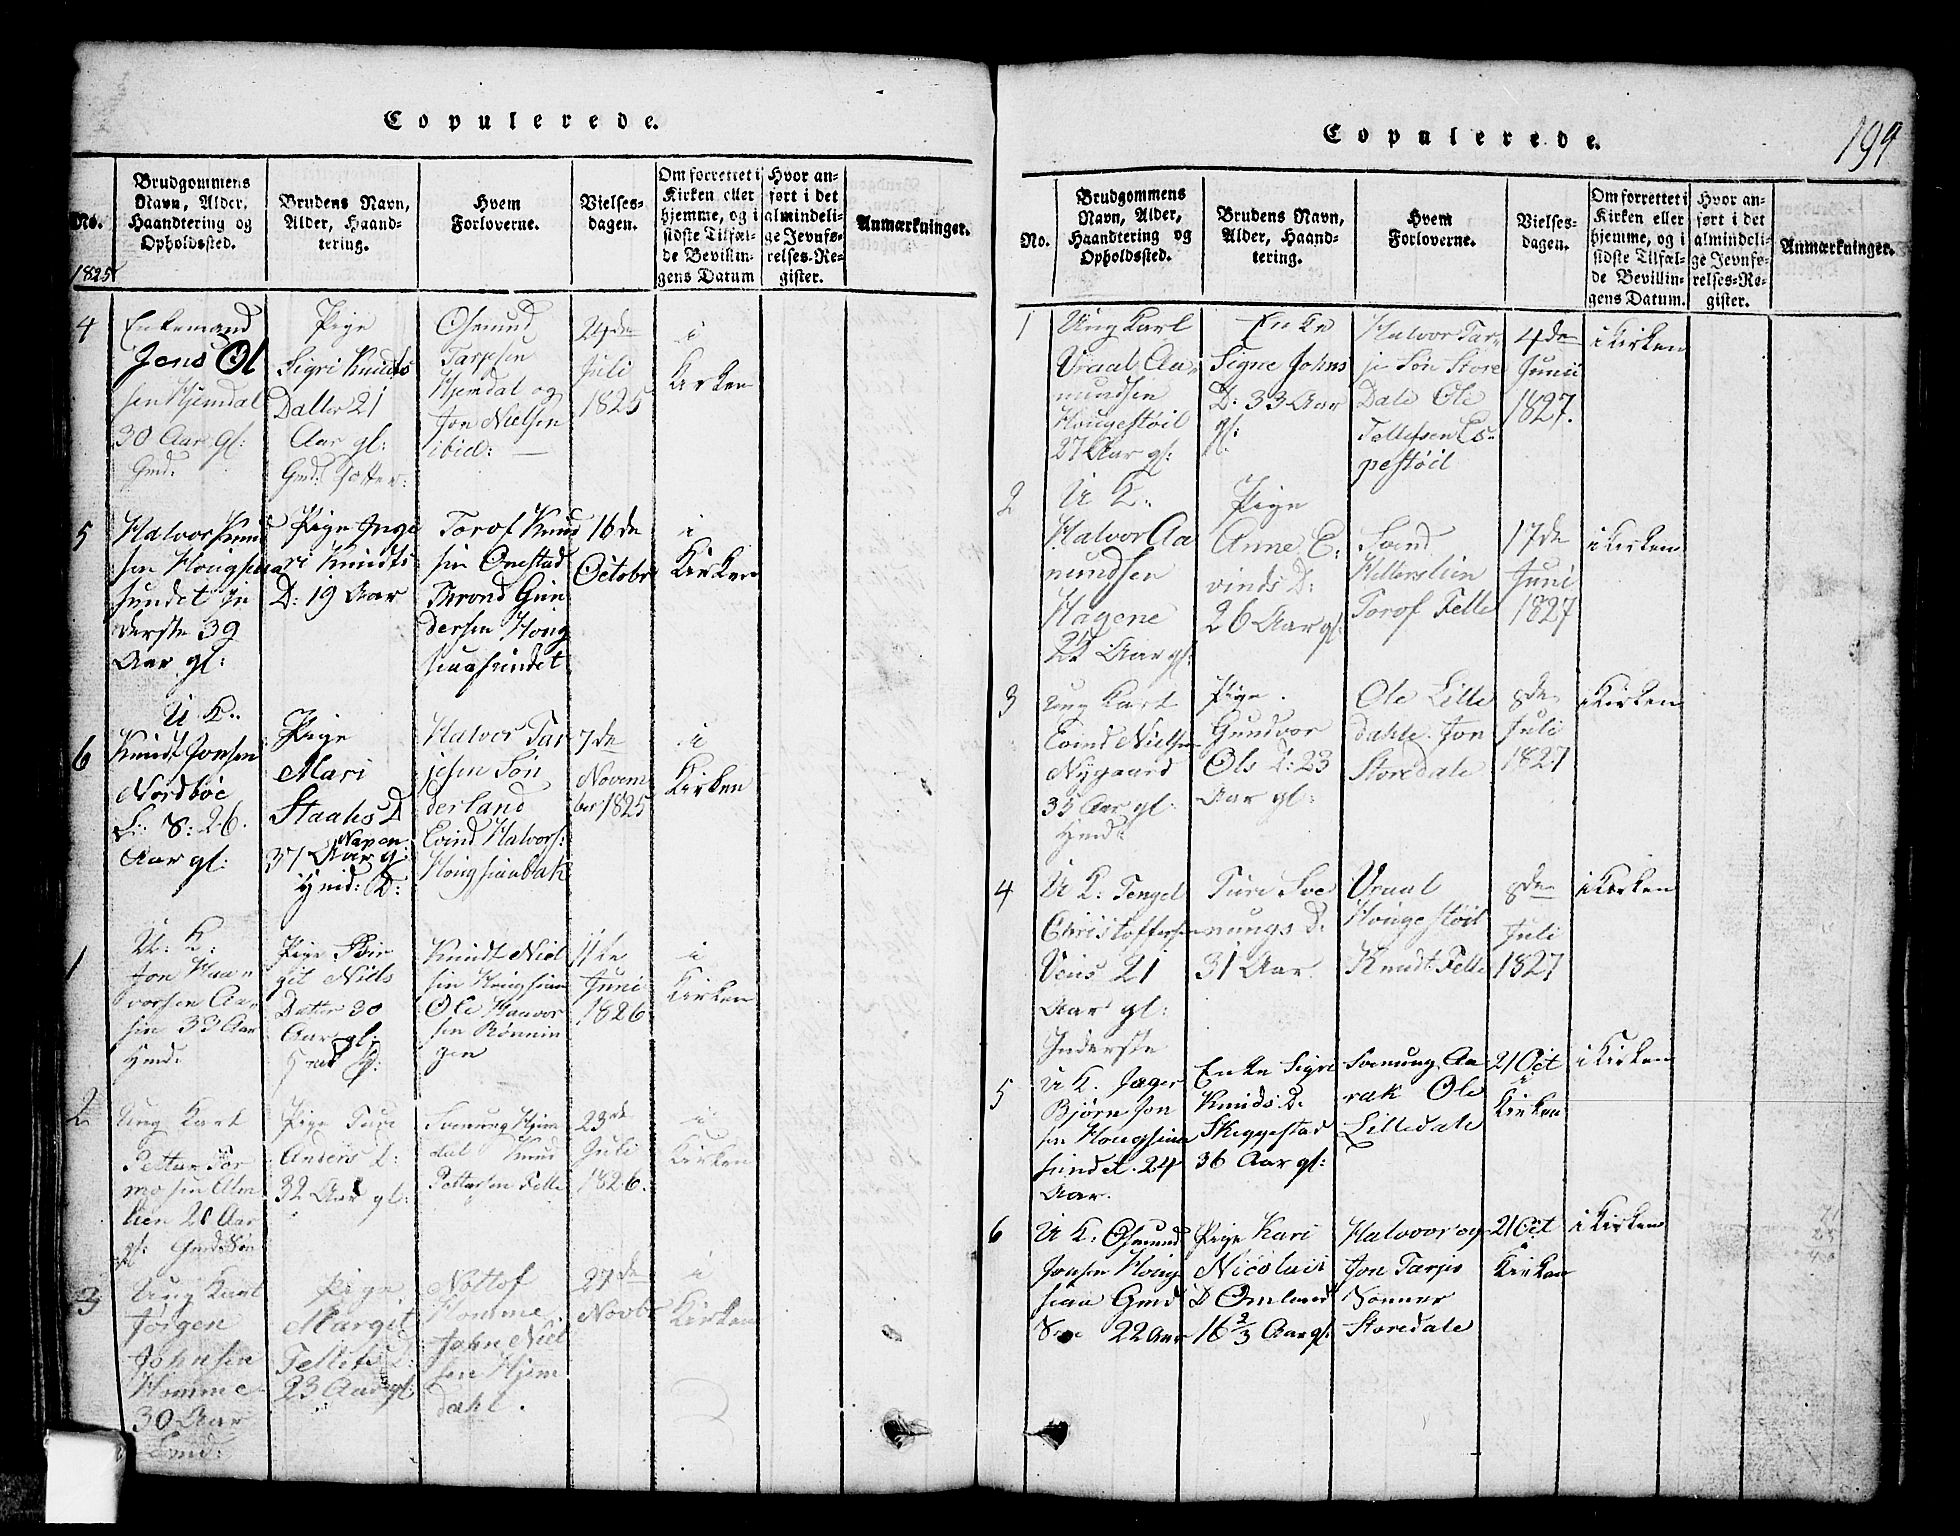 Copulerede.
No.
1825
Brudgommens
Navn, Alder,
Haandtering og
Opholdssted.
Brudens Navn,
Alder, Haand-
tering.
Hvem
Forloverne.
Vielses-
dagen.
Om forrettet i
Kirken eller
hjemme, og i
sidste Tilfæl-
de Bevillin-
gens Datum
Hvor an-
ført i det
almindeli-
ge Jevnfø-
relses-Re-
gister.
Anmærkninger.
4
Enkemand
Jens Ol
sen Hjemdal
30 Aar gl:
Gmd:
Pige
Sigri Knuds
Datter 21
Aar gl:
Gmd: Datter:
Osmund
Tarjesen
Hjemdal og
Jon Nielsen
ibid:
24de
Juli
1825
i
Kirken
5
Halvor Knud
sen
sundet In
derste 39
Aar gl:
Pige Inge
ri Knudts
D: 19 Aar
Torof Knud
sen Onestad
Trond Gun
dersen Houg
16de
Octobr
i
Kirken
6
U. K.
Knudt Jonsen
Nordboe
S: 26.
Aar gl:
Pige
Mari
Staaks D
37 Aar gl:
Halvor Tar
jesen Søn
derland
Evind Halvors:
7de
Novem
ber 1825
i
Kirken
1
U: K:
Jon Haav
vorsen Aa
sen 33 Aar
Hmd:
Pige Bir
git Niels
Datter 30
Aar gl:
Knudt Niel
sen
Ole Haavor
sen Rønnin
gen
11te
Juni
1826
i
Kirken
2
Ung Karl
Petter Tor
mosen
lien 28 Aar
gl: Gmds Søn
Pige Turi
Anders D:
32 Aar gl:
Svenung Hjem
dal Knud
Pettersen Felle
23de
Juli
1826.
i
Kirken
3
Ung Karl
Jørgen
Johnsen
Homme
30 Aar
Gmd:
Pige
Margit
Tellefs D:
23 Aar gl:
Nottof
Homme
John Niel
sen Hjem
dahl.
27de
Novbr
i
Kirken
Copulerede.
199
No.
Brudgommens
Navn, Alder,
Haandtering og
Opholdssted.
Brudens Navn,
Alder, Haand-
tering.
Hvem
Forloverne.
Vielses-
dagen.
Om forrettet i
Kirken eller
hjemme, og i
sidste Tilfæl-
de Bevillin-
gens Datum.
Hvor an-
ført i det
almindeli-
ge Jevnfø-
relses-Re-
gister.
Anmærkninger.
1
Ung Karl
Vraal Aa-
mundsen
Hougestøil
27 Aar gl:
Enke
Signe Johns
D: 33 Aar
gl:
Halvor Tar
je Søn Store
Dale Ole
Tellefsen Es-
pestøil
4de
Junii
1827.
i Kirken
2
U K:
Halvor Aa
mundsen
Hagene
Aar gl:
Pige
Anne E:
vinds D:
26 Aar gl:
Svend
Torof Felle
17de
Juni
1827
i Kirken
3
Ung Karl
Evind Nielsen
Nygaard
35 Aar gl.
Hmd:
Pige.
Gundvor
Ols D: 23
Aar gl:
Ole Lille
dahle. Jon
Storedale
8de
Juli
1827
i Kirken
4
U K: Tengel
Christoffersen
Veus 21
Aar gl:
Inderste
Turi Sve
nungs D:
31 Aar.
Vraal
Hougestøil
Knudt Felle
8de
Juli
1827
i Kirken
5
U K. Jæger
Bjørn Jon
sen
sundet. 24
Aar.
Enke Sigri
Knuds D.
Skeggestad
36 Aar gl:
Svenung Aa
rak Ole
Lilledale
21 Oct
i
Kirken
i Kirken
6
U K. Osmund
Jonsen Houg
Gmd
Søn 22 Aar
Pige Kari
Nicolaii
D Omland
16 2/3 Aar gl:
Halvoor og
Jon Tarjes
Sønner
Storedale
21 Oct
i
Kirken
i Kirken